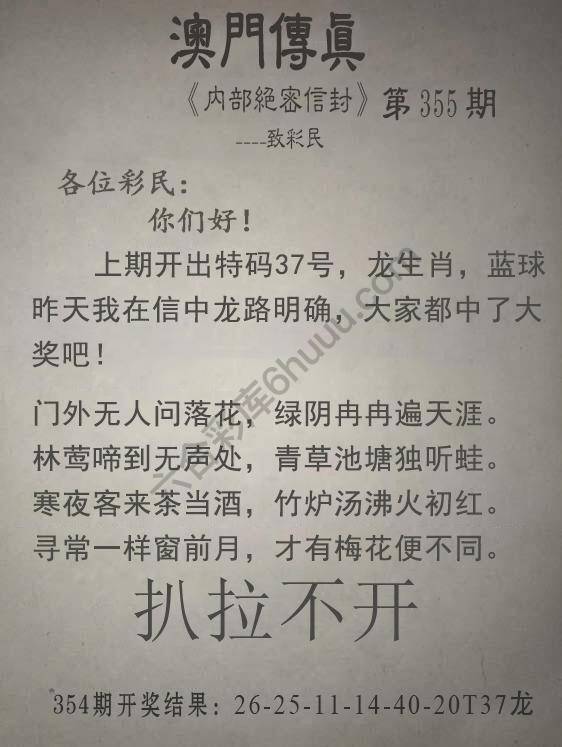 澳門傳眞
《内部絕密信封》第355期
----致彩民
各位彩民：
你们好！
上期开出特码37号，龙生肖，蓝球
昨天我在信中龙路明确，大家都中了大
奖吧！
门外无人问落花，绿阴冉冉遍天涯。
林莺啼到无声处，青草池塘独听蛙。
寒夜客来茶当酒，竹炉汤沸火初红。
寻常一样窗前月，才有梅花便不同。
扒拉不开
354期开奖结果：26-25-11-14-40-20T37龙
六合彩库6huuu.com